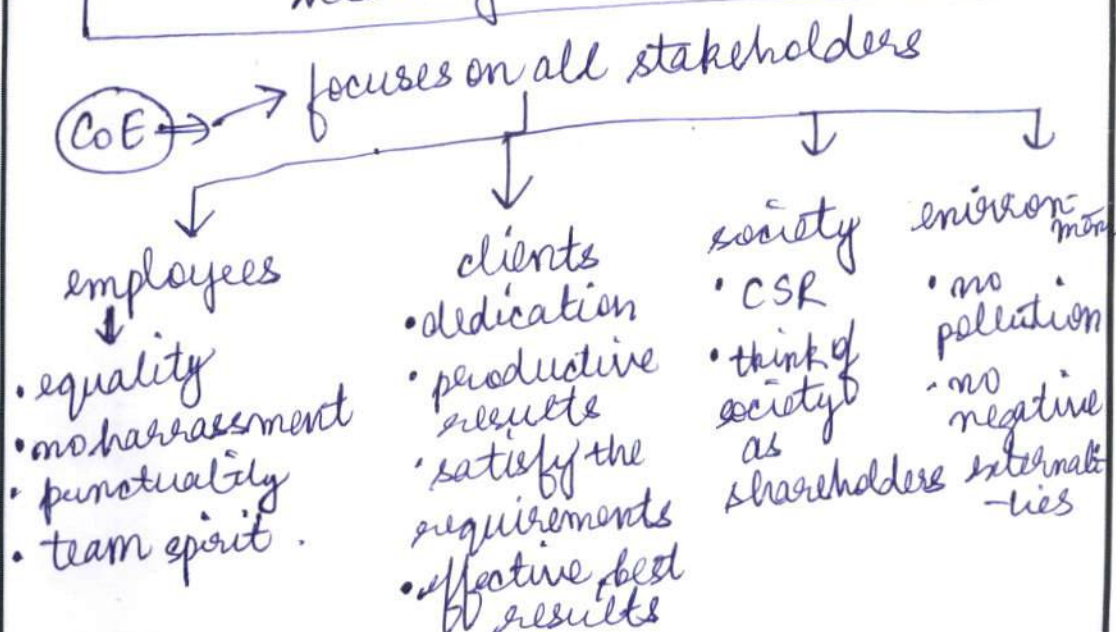 CoE
focuses on all stakeholders
employees
• equality
• no harrassment
• punctuality
• team spirit.
clients
• dedication
• productive
results
• satisfy the
requirements
• effective, best
results
society
• CSR
• think of
society
as
shareholders
• no
pollution
• no
negative
externali
-ties